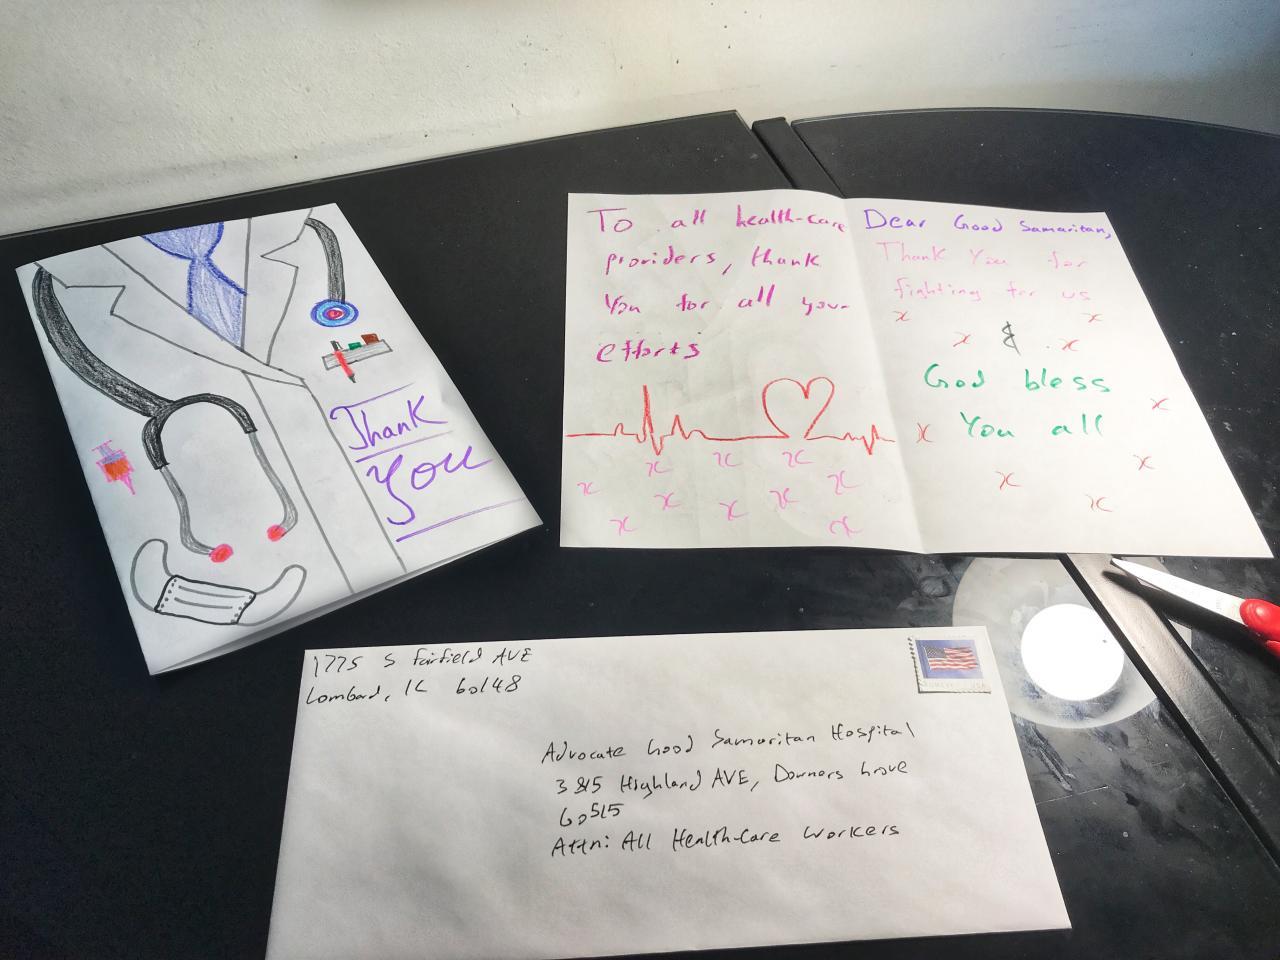 Thank
You
To all health-care
providers, thank
You for all your
efforts
Dear Good Samaritan,
Thank You for
fighting for us
&
God bless
You all
1775 S Fairfield AVE
Lombard, IL 60148
FOREVER USA
Advocate Good Samaritan Hospital
3815 Highland AVE, Downers Grove
60515
Attn: All Health-Care Workers